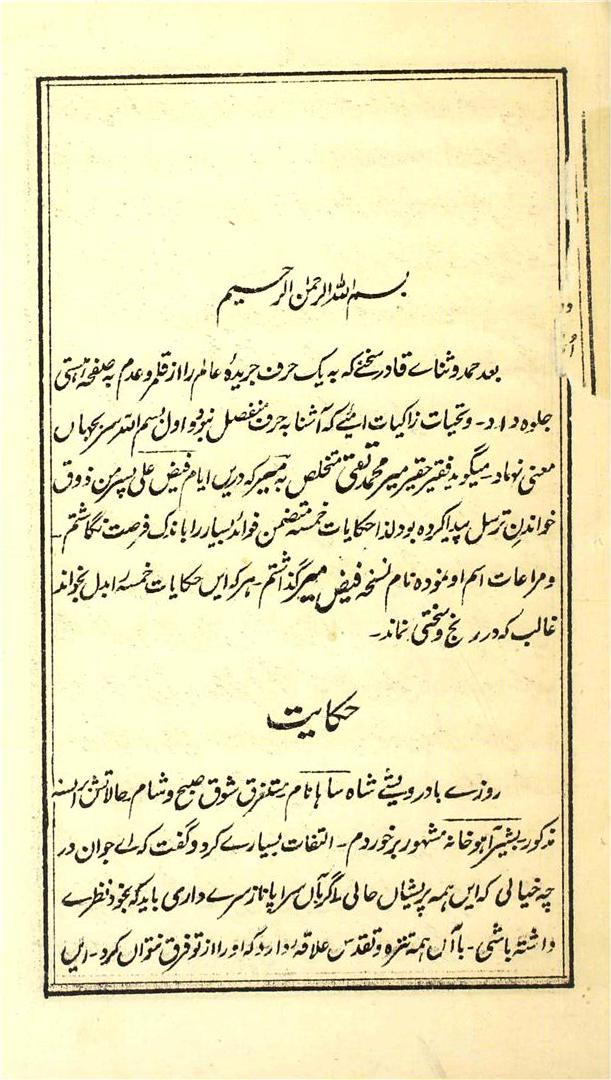 بسم الله الرحمن الرحیم
بعد حمد و ثناے قادر سخنے که به یک حرف جریدهٔ عالم را از قلمرو عدم به صفحهٔ هستی
جلوه داد۔ و تحیات زاکیات امیّے که آشنا به حرف منفصل نبود و اول بسم الله سر بجهان
معنی نهاد۔ میگوید فقیر حقیر میر محمد تقی متخلص به میر که دریں ایام فیض علی پسر من ذوق
خواندنِ ترسل پیدا کرده بود لذا حکایات خمسه متضمن فوائد بسیار را باندک فرصت نگاشتم۔
و مراعات اسم او نموده نام نسخه فیض میر گذاشتم۔ هر که ایں حکایات خمسه را بدل بخواند
غالب که در رنج و سختی نماند۔
حکایت
روزے با درویشے شاه ساها نام مستغرق شوق صبح و شام۔ حالاتش بر السنه
مذکور بشیر آهو خانه مشهور برخوردم۔ التفات بسیارے کرد و گفت که اے جوان در
چه خیالی که ایں همه پریشاں حالی اگر بآں سراپا ناز سرے داری باید که بخود نظرے
داشته باشی۔ با آں همه تنزه و تقدس علاقهٔ دارد که او را از تو فرق نتواں کرد۔ ایں